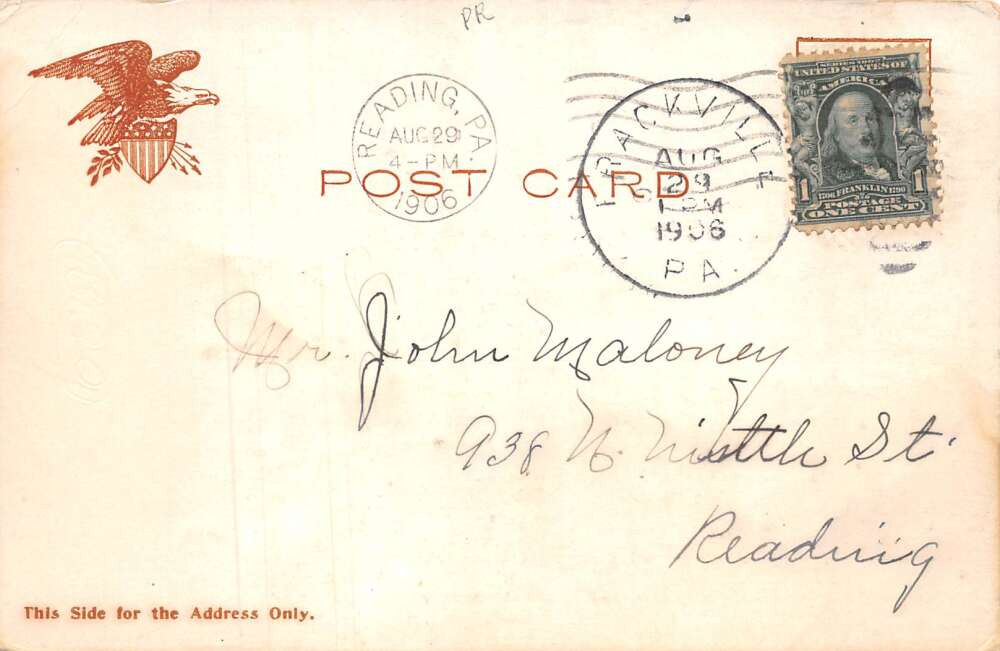 PR
READING, PA.
AUG 29
4-PM
1906
POST CARD
FRACKVILLE
AUG
29
1 PM
1906
PA.
SERIES 1902
UNITED STATES OF
AMERICA
1 1706 FRANKLIN 1790 1
POSTAGE
ONE CENT
Mr. John Maloney
938 N. St.
Reading
This Side for the Address Only.